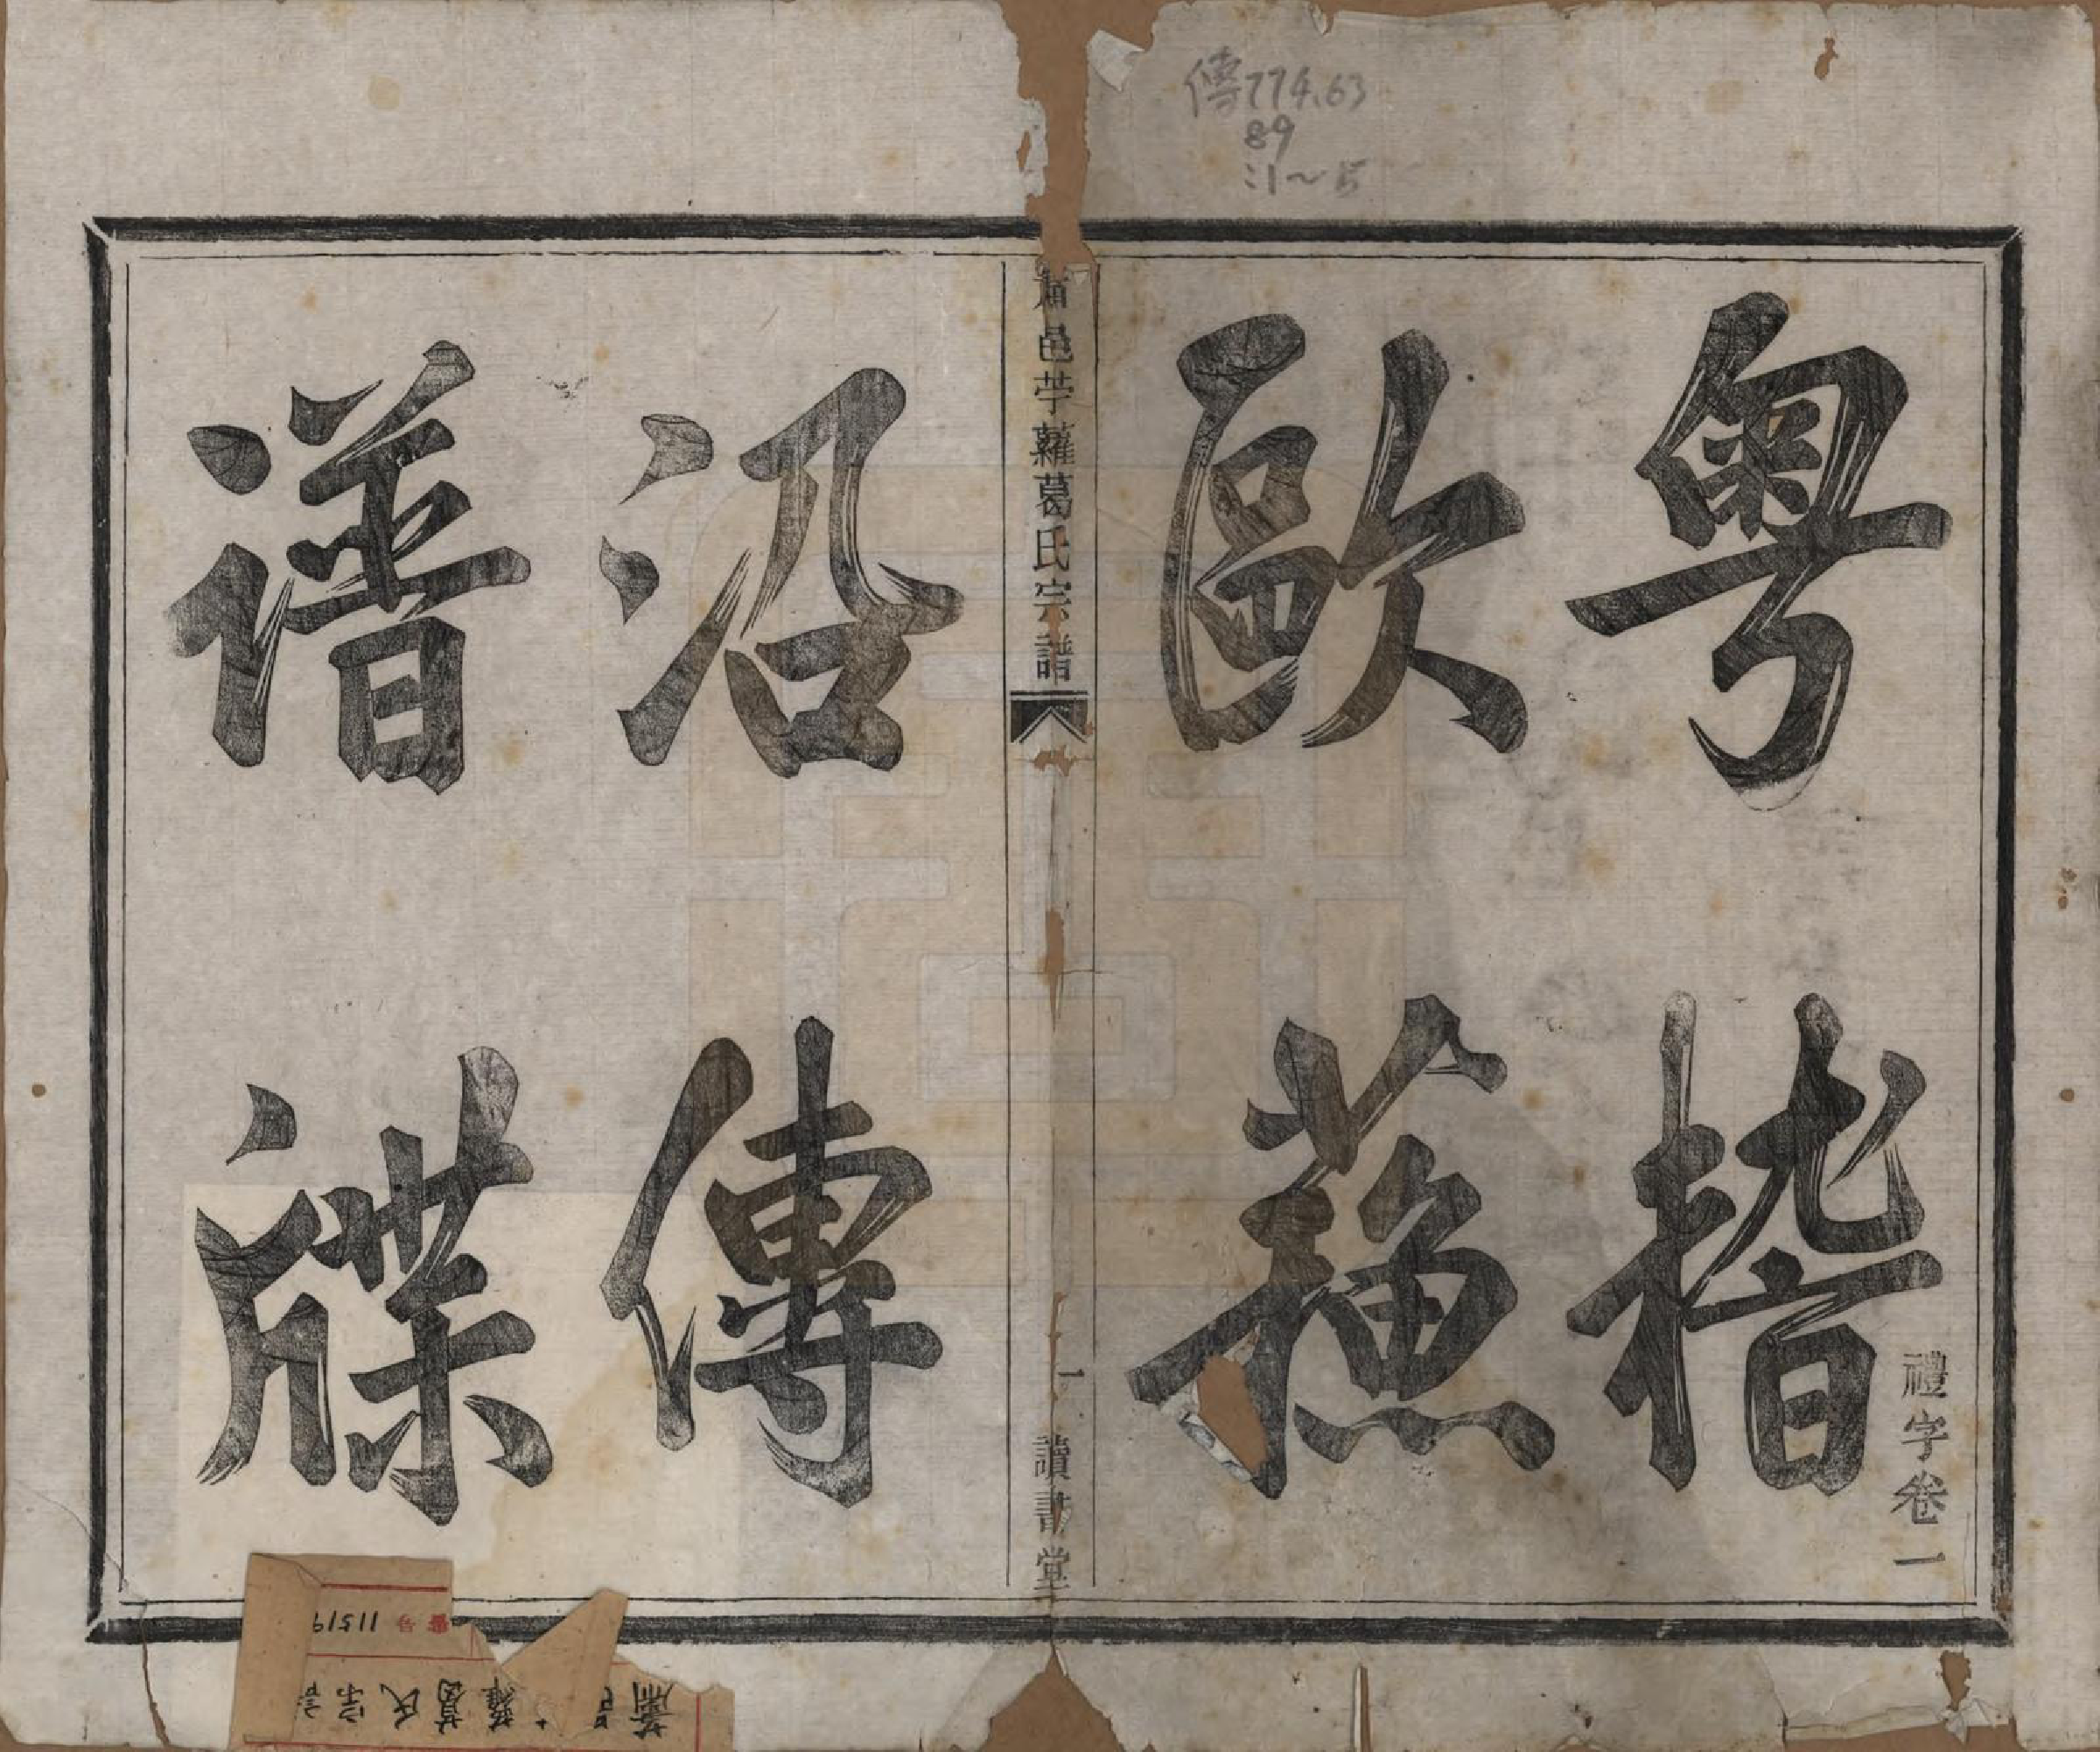 傳774.63
89
:1~15
粵稽
歐蘓
禮字卷一
蕭邑苧蘿葛氏宗譜
一
讀書堂
沿傳
譜牒
番号 11519
蕭 蘿葛氏宗譜